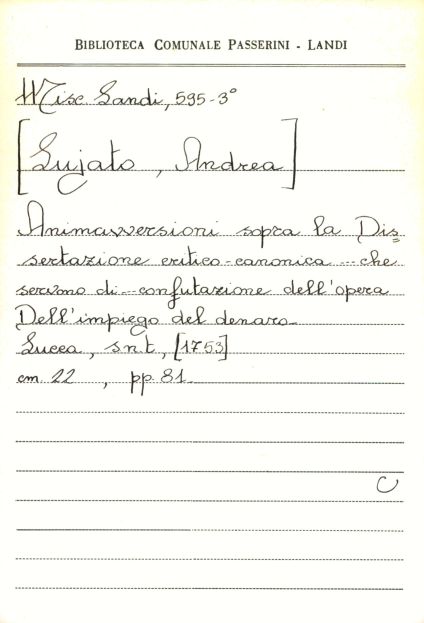 BIBLIOTECA COMUNALE PASSERINI - LANDI
Misc Landi, 595-3°
[Lujato, Andrea]
Animavversioni sopra la Dis=
sertazione critico-canonica --- che
servono di --- confutazione dell'opera
Dell'impiego del denaro_
Lucca, s.n.t, [1753]
cm. 22 , pp. 81_
C